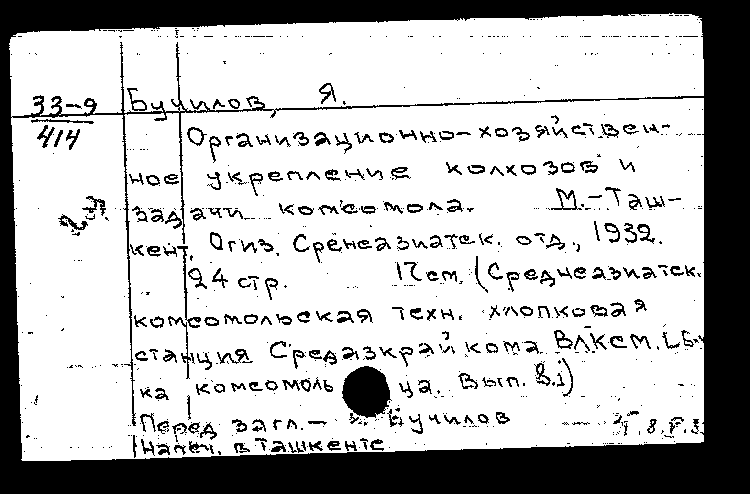 33-9 Бучилов, Я.
414 Организационно-хозяйствен-
ное укрепление колхозов и
задачи комсомола. М.-Таш-
кент, Огиз. Сренеазиатск. отд., 1932.
24 стр. 17 см. (Среднеазиатск.
комсомольская техн. хлопковая
станция Средазкрайкома ВЛКСМ. [Б-
ка комсомоль ца. Вып. 8.])
Перед загл.- Бучилов
Напеч. в Ташкенте